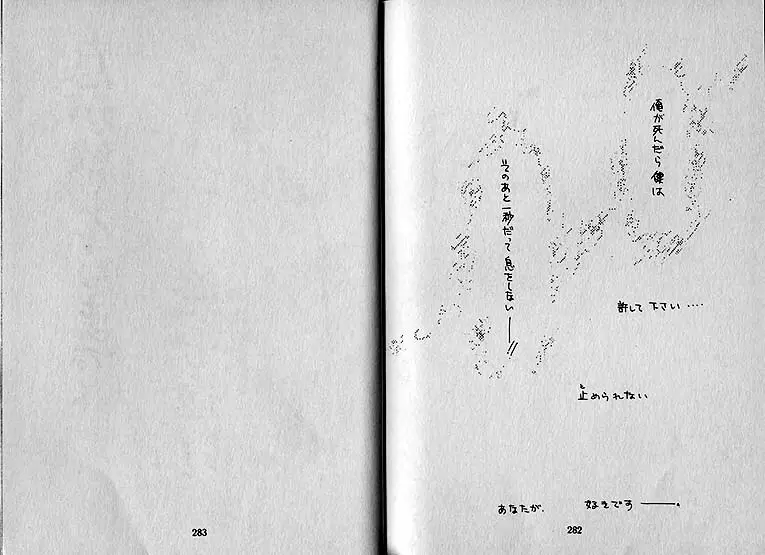 俺が死んだら僕は
そのあと一秒だって息をしない――
許して下さい‥‥
止められない
あなたが、 好きです――。
282
283